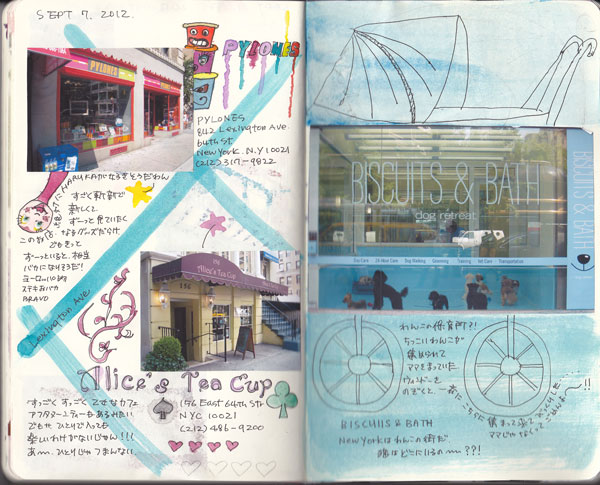 SEPT 7. 2012.
PYLONES
PYLONES
PYLONES
842 Lexington Ave.
64th St
New York. N.Y 10021
(212) 317-9822
すごく斬新で
新しくて
ずーっと見ていたく
なるグッズだらけ
ずーっといると、相当
バカになりそうだ!
ヨーロッパの
ステキなバカ
BRAVO
Lexington Ave
Alice's Tea Cup
156
Alice's Tea Cup
156 East 64th St
NYC 10021
(212) 486-9200
すっごく すっごく 乙女なカフェ
アフタヌーンティーもあるみたい
でもサ ひとりで入っても
楽しいわけがないじゃん!!!
あ〜 ひとりじゃ つまんない.
BISCUITS & BATH
dog retreat
BISCUITS & BATH
Day Care | 24 Hour Care | Dog Walking | Grooming | Training | Vet Care | Transportation
わんこの保育所?!
ちっこいわんこが
集められて
ママをまっていた
ウィンドーを
のぞくと、一斉にこちらに
ママじゃなくってごめんよ〜!!
BISCUITS & BATH
New Yorkはわんこの街だ
猫はどこにいるの〜??!